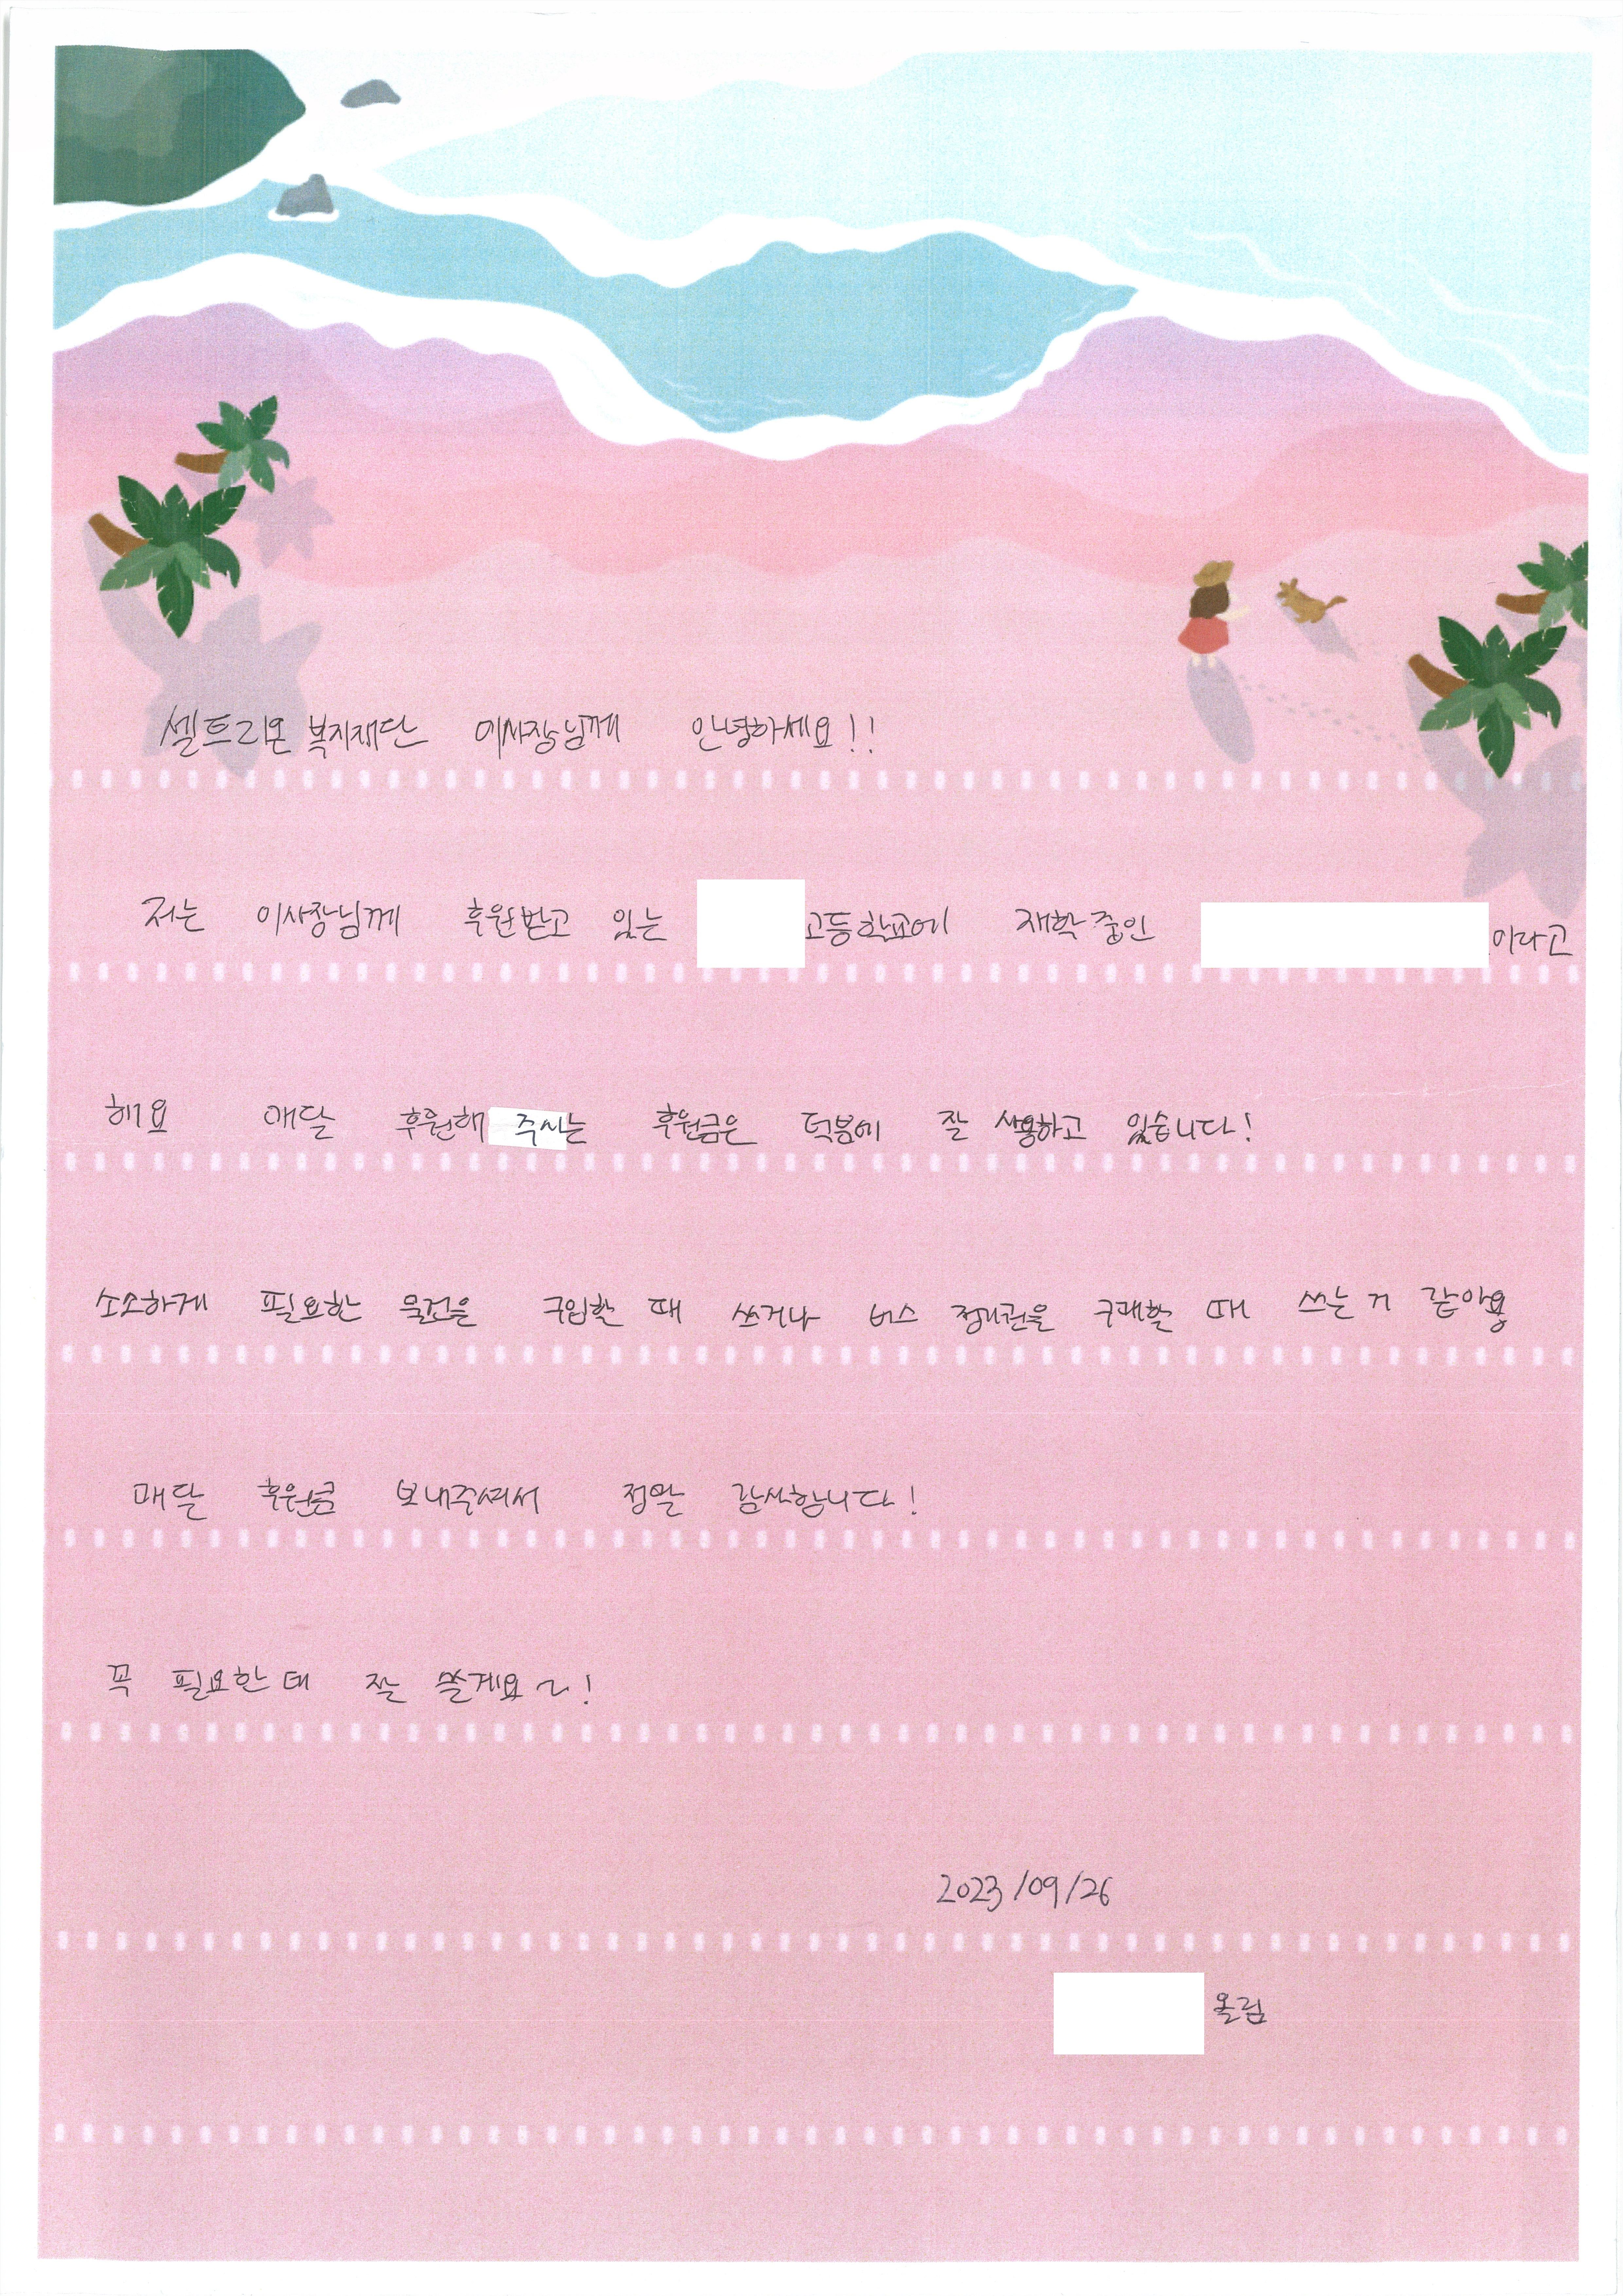 셀트리온 복지재단 이사장님께 안녕하세요!!
저는 이사장님께 후원받고 있는 고등학교에 재학중인 이라고
해요 매달 후원해 주시는 후원금은 덕분에 잘 사용하고 있습니다!
소소하게 필요한 물건을 구입할 때 쓰거나 버스 정기권을 구매할 때 쓰는 거 같아용
매달 후원금 보내주셔서 정말 감사합니다!
꼭 필요한데 잘 쓸게요~!
2023/09/26
올림